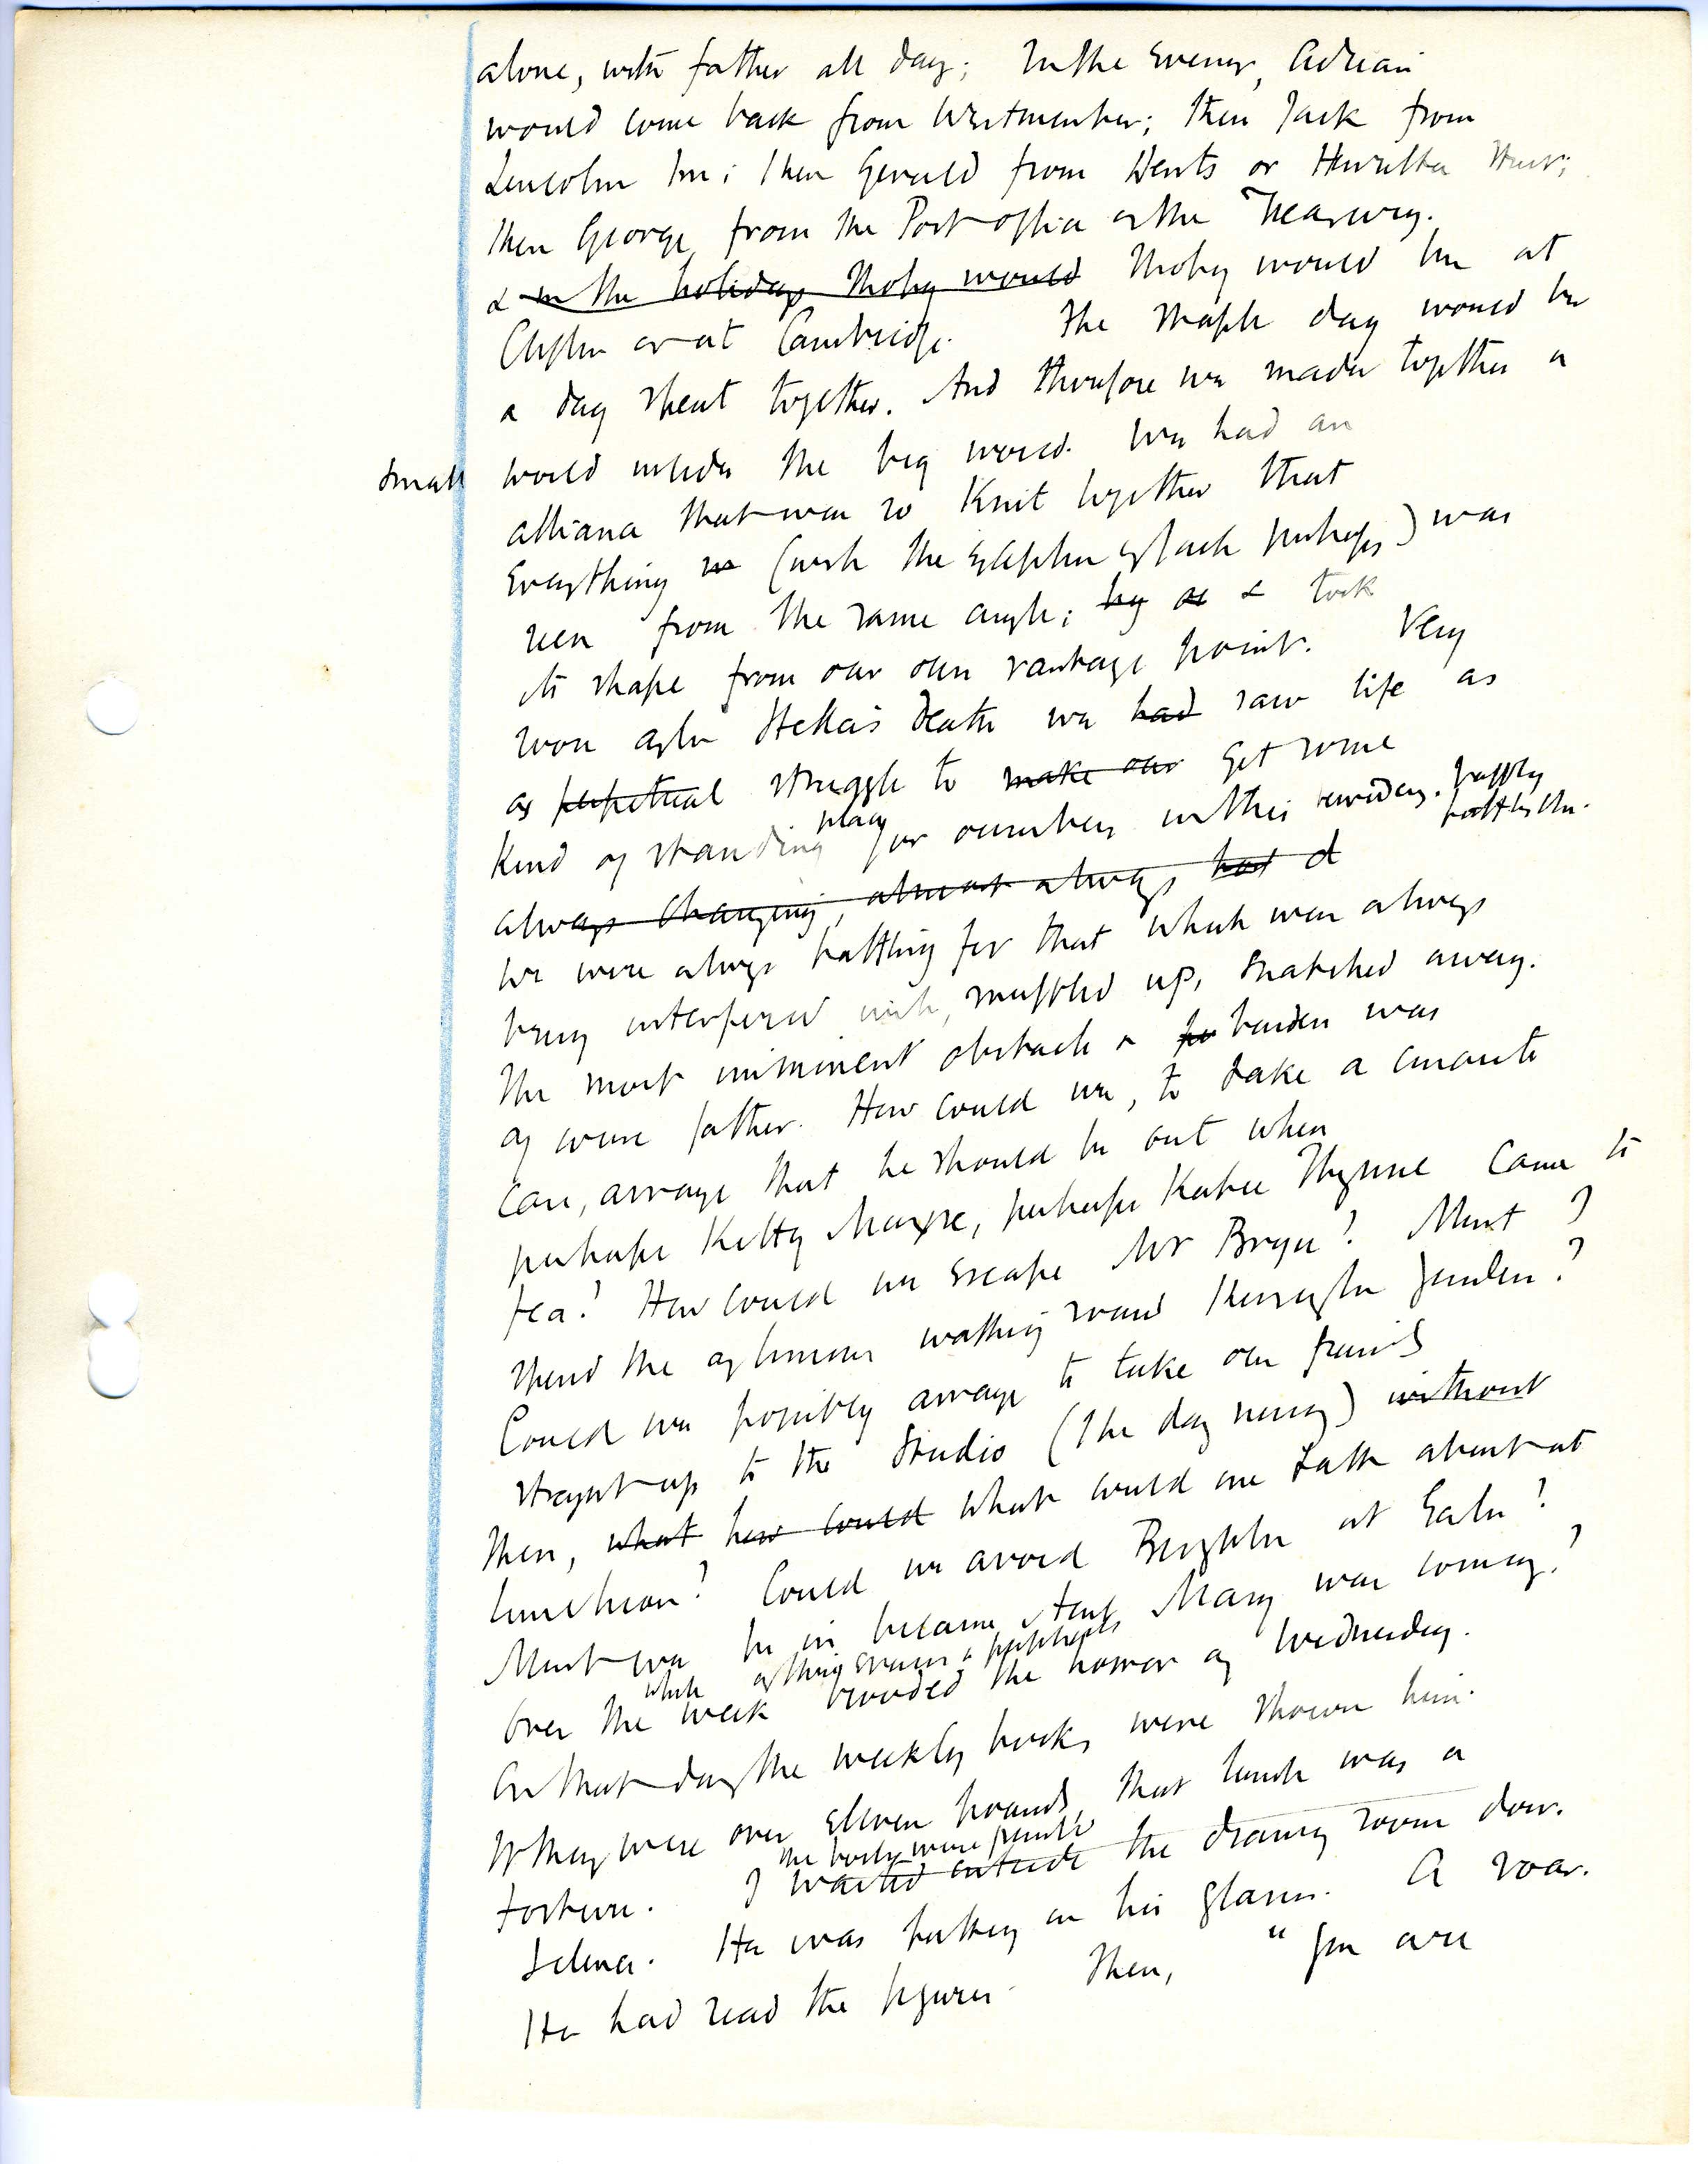 alone, with father all day; In the evening, Adrian
would come back from Westminster; then Jack from
Lincolns Inn; then Gerald from Dents or Henrietta Street;
then George, from the Post office or the Treasury.
& in the holidays Thoby would Thoby would be at
Clifton or at Cambridge. The staple day would be
a day spent together. And therefore we made together a
small world inside the big world. We had an
alliance that was so knit together that
everything (with the exception of Jack perhaps) was
seen from the same angle; by & took
its shape from our own vantage point. Very
soon after Stella's death we had saw life as
as perpetual struggle to make our get some
kind of standing place for ourselves in this
always changing, almost always had
we were always battling for that which was always
being interfered with, muffled up, snatched away.
The most imminent obstacle & burden was
of course father. How could we, to take a concrete
case, arrange that he should be out when
perhaps Kitty Maxse, perhaps Katie Thynne came to
tea? How could we escape Mr Bryce? Must I
spend the afternoon walking round Kensington Gardens?
Could we possibly arrange to take our friends
straight up to the studio (the day nursery) without
Then, what how could what could one talk about at
luncheon? Could we avoid Brighton at Easter?
Must we be in because Aunt Mary was coming?
over the whole week brooded the horror of Wednesday.
On that day the weekly books were shown him.
If they were over eleven pounds, that lunch was a
torture. I waited outside the drawing room door.
the books were presented
Silence. He was putting on his glasses. A roar.
He had read the figures. Then, "You are